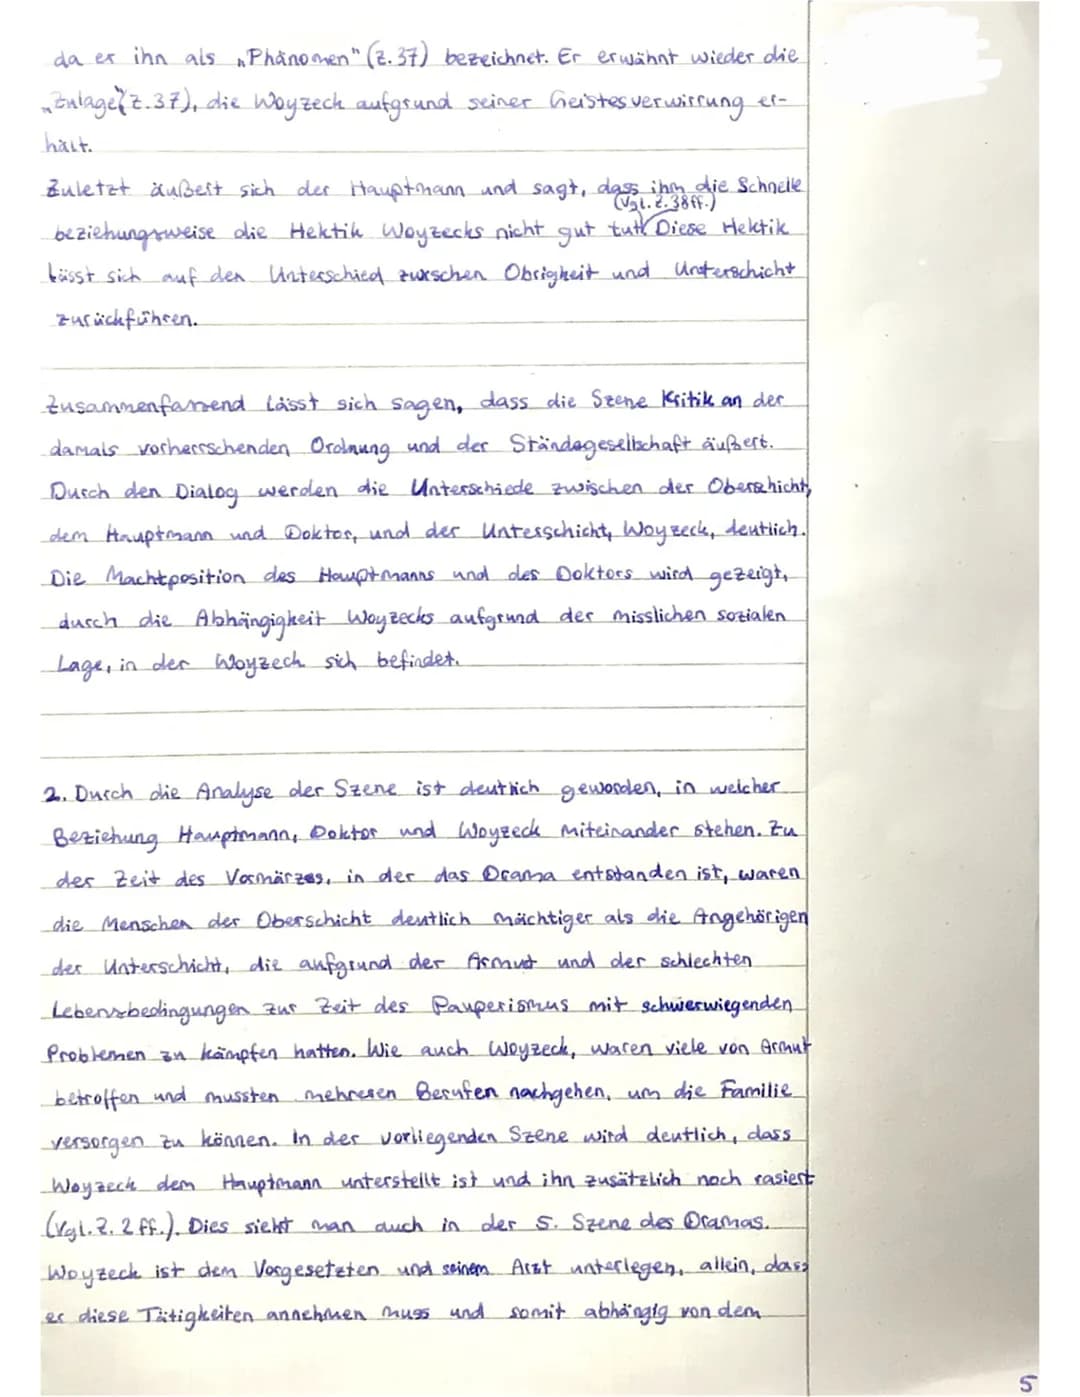 da er ihn als „Phänomen" (Z.37) bezeichnet. Er erwähnt wieder die
„Zulage" (Z.37), die Woyzeck aufgrund seiner Geistesverwirrung er-
hält.
Zuletzt äußert sich der Hauptmann und sagt, dass ihm die Schnelle
(Vgl. Z. 38ff.)
beziehungsweise die Hektik Woyzecks nicht gut tut. Diese Hektik
lässt sich auf den Unterschied zwischen Obrigkeit und Unterschicht
zurückführen.
Zusammenfassend lässt sich sagen, dass die Szene Kritik an der
damals vorherrschenden Ordnung und der Ständegesellschaft äußert.
Durch den Dialog werden die Unterschiede zwischen der Oberschicht,
dem Hauptmann und Doktor, und der Unterschicht, Woyzeck, deutlich.
Die Machtposition des Hauptmanns und des Doktors wird gezeigt,
durch die Abhängigkeit Woyzecks aufgrund der misslichen sozialen
Lage, in der Woyzeck sich befindet.
2. Durch die Analyse der Szene ist deutlich geworden, in welcher
Beziehung Hauptmann, Doktor und Woyzeck miteinander stehen. Zu
der Zeit des Vormärzes, in der das Drama entstanden ist, waren
die Menschen der Oberschicht deutlich mächtiger als die Angehörigen
der Unterschicht, die aufgrund der Armut und der schlechten
Lebensbedingungen zur Zeit des Pauperismus mit schwierwiegenden
Problemen zu kämpfen hatten. Wie auch Woyzeck, waren viele von Armut
betroffen und mussten mehreren Berufen nachgehen, um die Familie
versorgen zu können. In der vorliegenden Szene wird deutlich, dass
Woyzeck dem Hauptmann unterstellt ist und ihn zusätzlich noch rasiert
(Vgl. Z. 2 ff.). Dies sieht man auch in der 5. Szene des Dramas.
Woyzeck ist dem Vorgesetzten und seinem Arzt unterlegen, allein, dass
er diese Tätigkeiten annehmen muss und somit abhängig von dem
5